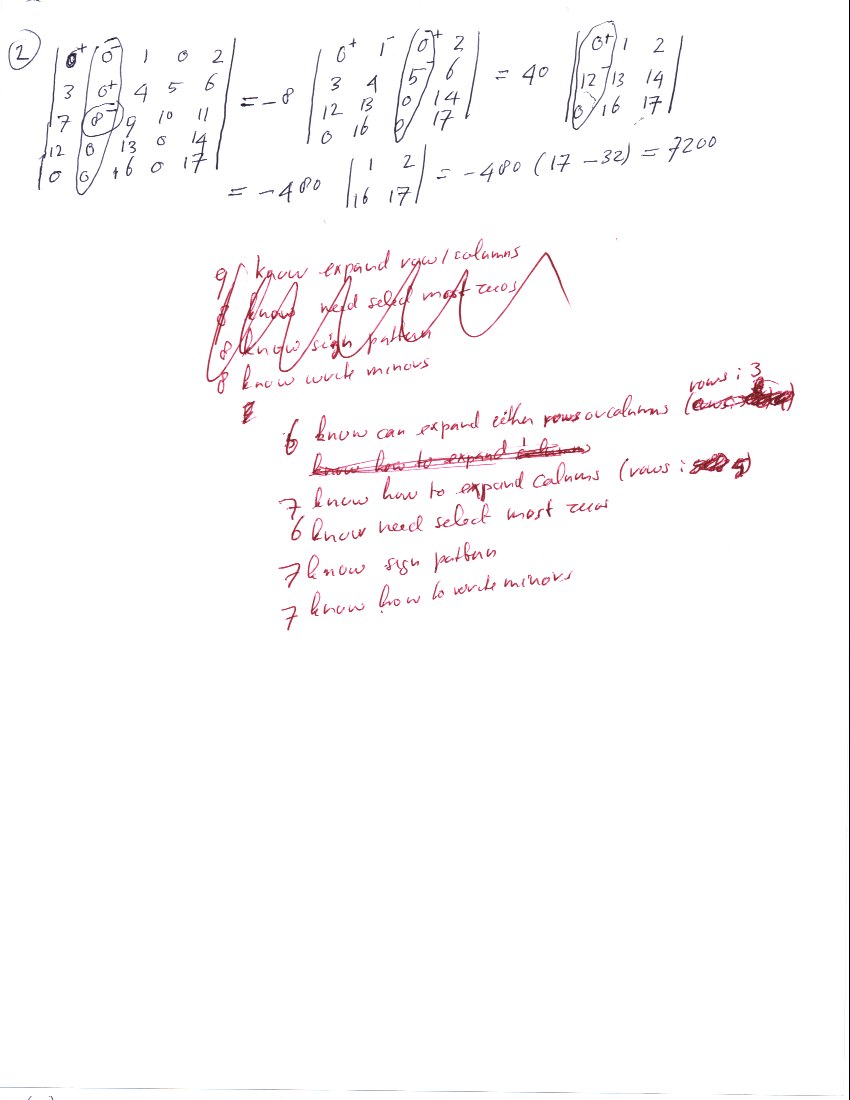 ② | 0⁺ 0⁻ 1 0 2 | = -8 | 0⁺ 1⁻ 0⁺ 2 | = 40 | 0⁺ 1 2 |
| 3 0⁺ 4 5 6 | | 3 4 5⁻ 6 | | 12⁻ 13 14 |
| 7 8⁻ 9 10 11 | | 12 13 0 14 | | 0 16 17 |
| 12 0 13 0 14 | | 0 16 0 17 |
| 0 0 16 0 17 |
= -480 | 1 2 | = -480 (17 - 32) = 7200
| 16 17 |
9 know expand row/columns
8 know need select most zeros
8 know sign pattern
8 know write minors
rows: 3
6 know can expand either rows or columns (
know how to expand columns
7 know how to expand columns (rows: )
6 know need select most zeros
7 know sign pattern
7 know how to write minors